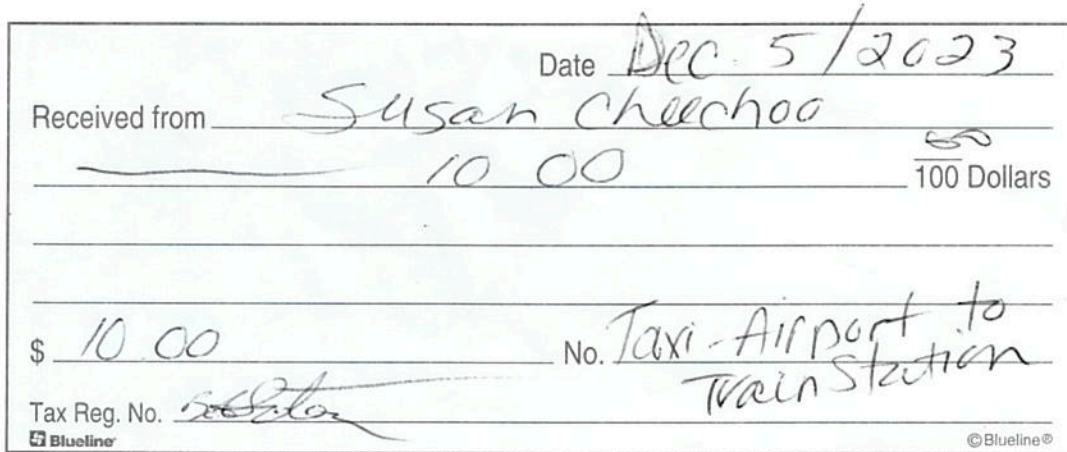 Date Dec. 5/2023
Received from Susan Cheechoo
10 00 00/100 Dollars
$ 10.00 No. Taxi-Airport to
Train Station
Tax Reg. No.
Blueline ©Blueline®